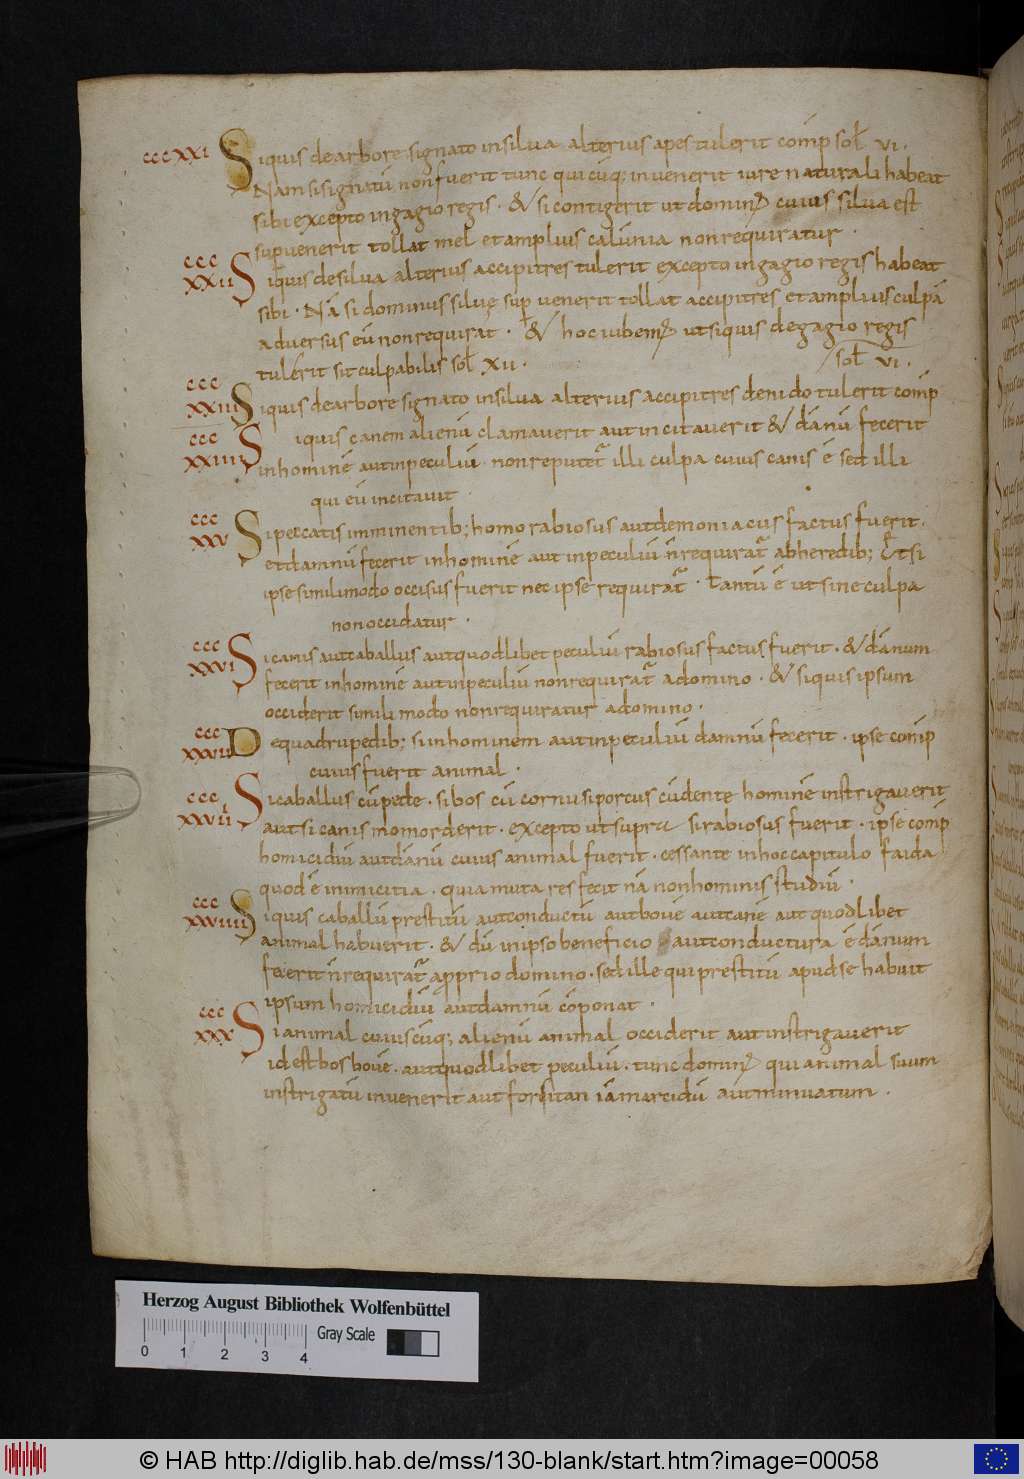 cccxxi Siquis dearbore signato insilva alterius apes tulerit comp̄ sol̄ vi.
Nam sisignatū nonfuerit tunc quicūq; invenerit iure naturali habeat
sibi excepto ingagio regis. & si contigerit ut domin; cuius silva est
sup̄venerit tollat mel et amplius calūnia nonrequiratur.
ccc xxii Siquis desilva alterius accipitres tulerit excepto ingagio regis habeat
sibi. Nā si dominus silvę sup̄venerit tollat accipitres et amplius culpā
adversus eū nonrequirat. & hoc iubem; ut siquis degagio regis
tulerit sit culpabilis sol̄ xii. sol̄ vi.
ccc xxiii Siquis dearbore signato insilva alterius accipitres denido tulerit comp̄
ccc xxiiii Siquis canem alienū clamaverit aut incitaverit & dānū fecerit
inhominē aut inpeculiū. nonreputet̄ illi culpa cuius canis ē sed illi
qui eū incitavit.
ccc xxv Sipeccatis imminentib; homo rabiosus aut demoniacus factus fuerit.
et damnū fecerit inhominē aut inpeculiū n̄ requirat̄ abheredib; Et si
ipse similimodo occisus fuerit nec ipse requirat̄. Tantū ē ut sine culpa
non occidatur.
ccc xxvi Sicanis aut caballus aut quodlibet peculiū rabiosus factus fuerit. & dānum
fecerit inhominē aut inpeculiū nonrequirat̄ adomino. & siquis ipsum
occiderit simili modo nonrequiratur adomino.
ccc xxvii Dequadrupedib; siinhominem aut inpeculiū damnū fecerit. ipse comp̄
cuius fuerit animal.
ccc xxviii Sicaballus cū pede. si bos cū cornu si porcus cū dente hominē instrigaverit
aut si canis momorderit. excepto ut supra si rabiosus fuerit. ipse comp̄
homicidiū aut dānū cuius animal fuerit. cessante inhoc capitulo faida
quod ē inimicitia. quia muta res fecit nā nonhominis studiū.
ccc xxviiii Siquis caballū prestitū aut conductū aut bovē aut canē aut quodlibet
animal habuerit. & dū inipso beneficio aut conductura ē dānum
fecerit n̄ requirat̄ approprio domino. sed ille qui prestitū apud se habuit
ipsum homicidiū aut damnū cōponat.
ccc xxx Sianimal cuiuscūq; alienū animal occiderit aut instrigaverit
id est bos bovē. aut quodlibet peculiū. tunc domin; qui animal suum
instrigatū invenerit aut forsitan iā marcidū aut minuatum.
Herzog August Bibliothek Wolfenbüttel
Gray Scale
0 1 2 3 4
© HAB http://diglib.hab.de/mss/130-blank/start.htm?image=00058